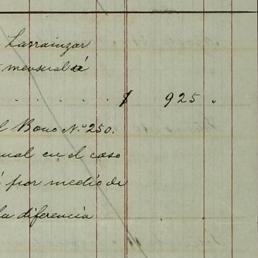 Larrainzar
mensual á
. . . . . . $ 925 "
l Bono N.º 250.
ual en el caso
á por medio de
la diferencia